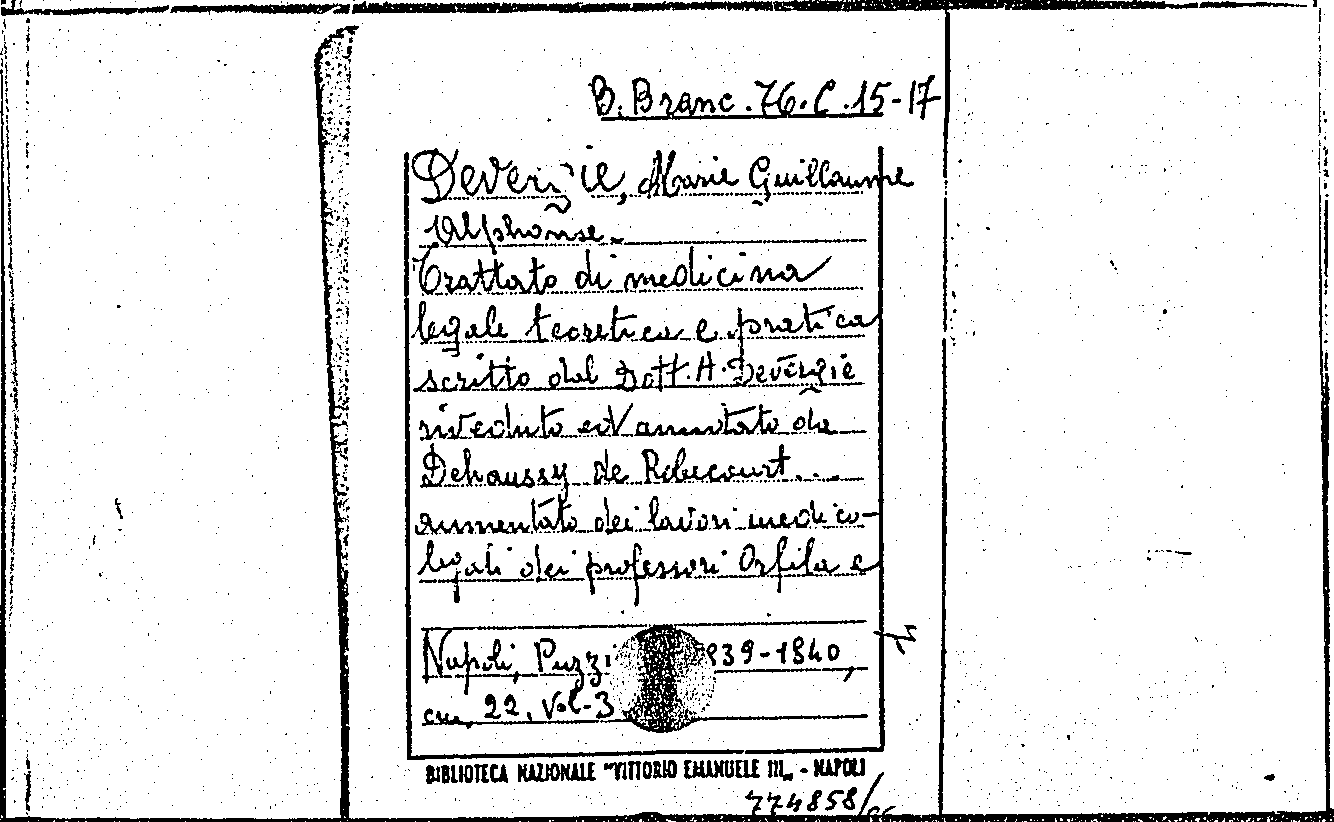 B. Branc. 76. C. 15-17
Devergie, Marie Guillaume
Alphonse.
Trattato di medicina
legale teoretica e pratica
scritto dal Dott. A. Devergie
riveduto ed annotato da
Dehaussy de Robecourt...
aumentato dei lavori medico-
legali dei professori Orfila e
Napoli, Puzzi 839-1840,
cm. 22. Vol-3
BIBLIOTECA NAZIONALE "VITTORIO EMANUELE III„ - NAPOLI
774858/